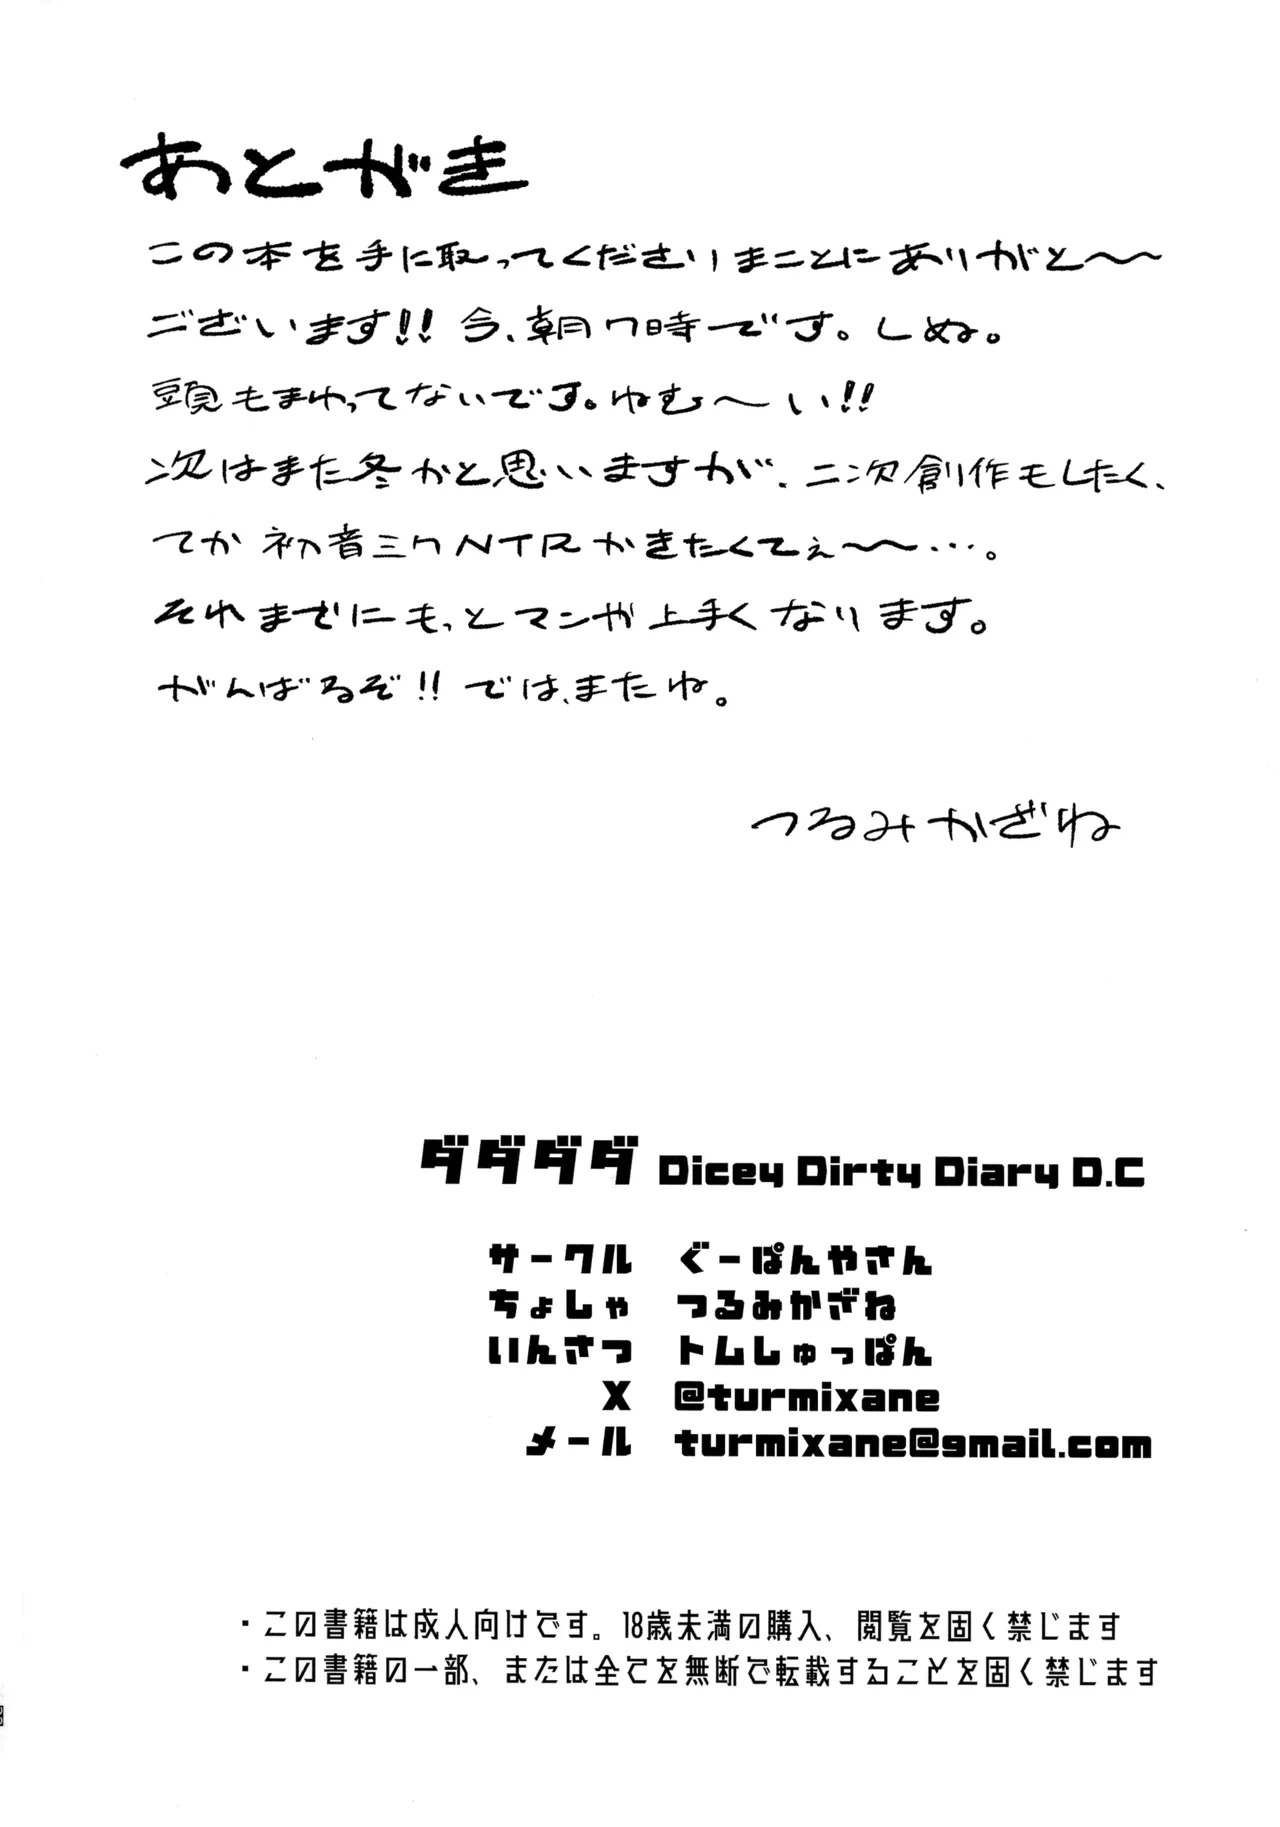 あとがき
この本を手に取ってくださりまことにありがと〜〜
ございます!! 今、朝7時です。しぬ。
頭もまわってないです。ねむ〜い!!
次はまた冬かと思いますが、二次創作もしたく、
てか初音ミクNTRかきたくてぇ〜〜…。
それまでにもっとマンガ上手くなります。
がんばるぞ!! では、またね。
つるみかざね
ダダダダ Dicey Dirty Diary D.C
サークル ぐーぱんやさん
ちょしゃ つるみかざね
いんさつ トムしゅっぱん
X @turmixane
メール turmixane@gmail.com
・この書籍は成人向けです。18歳未満の購入、閲覧を固く禁じます
・この書籍の一部、または全てを無断で転載することを固く禁じます